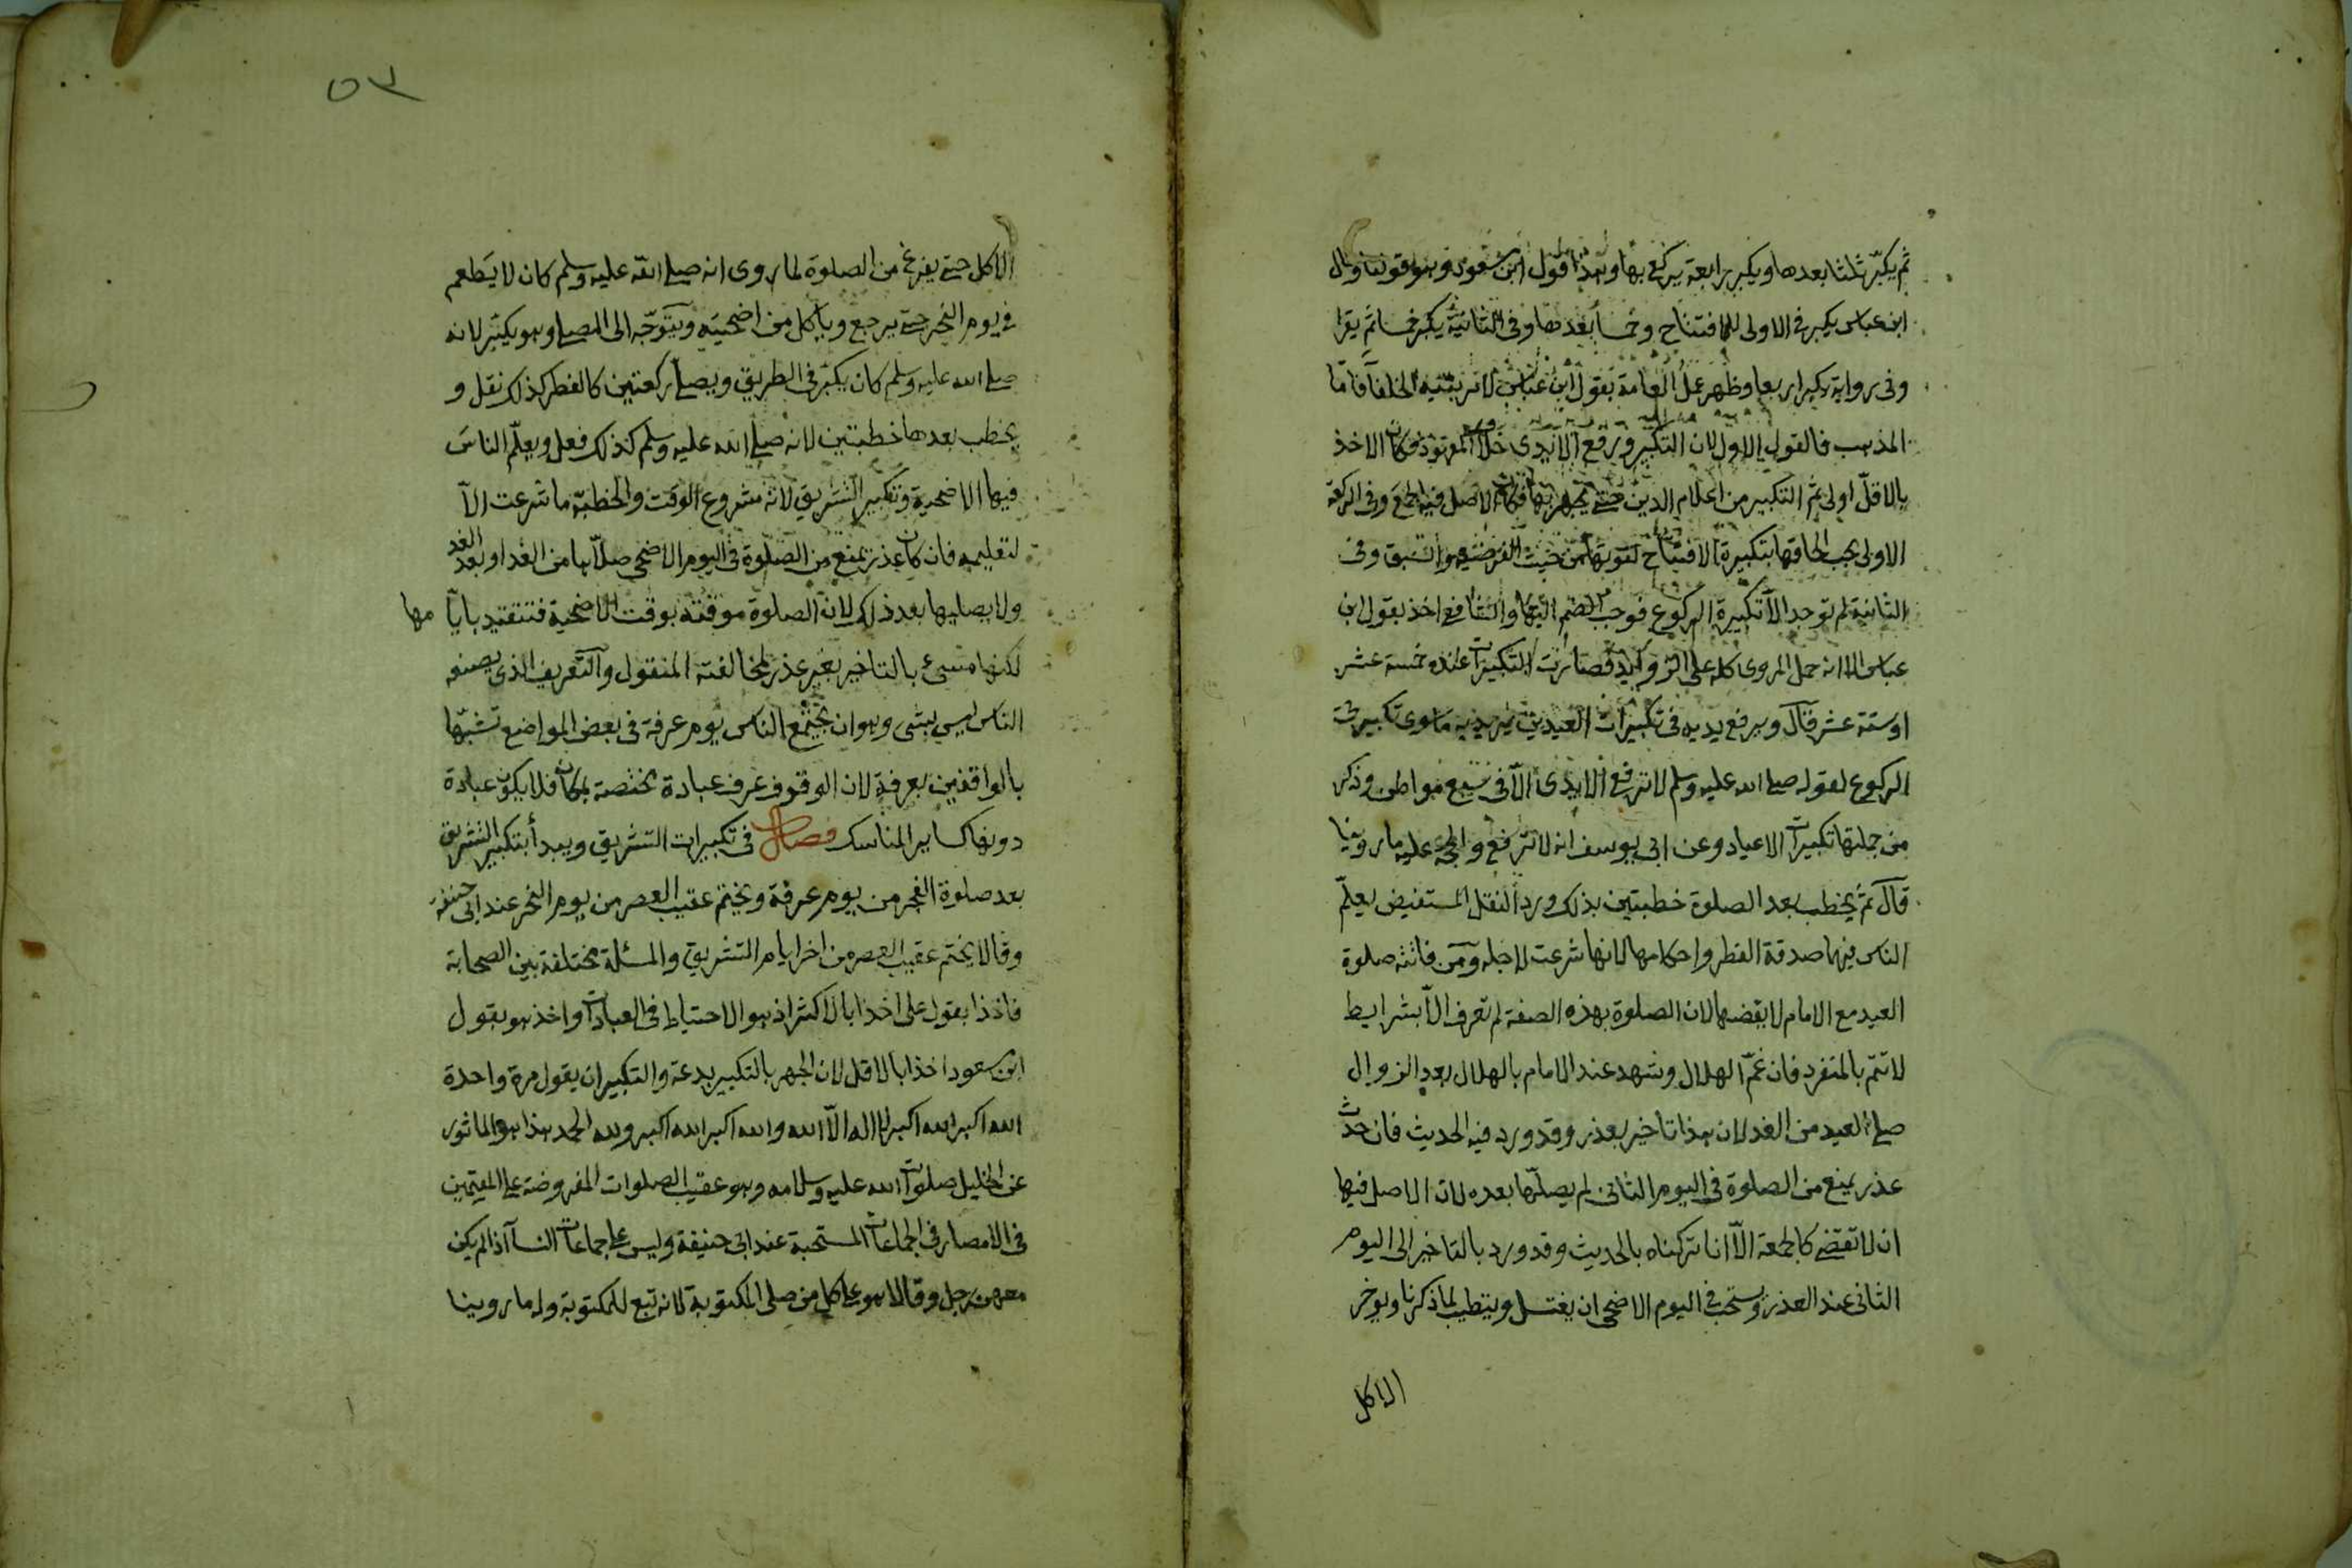 ثم يكبر ثلثا بعدها ويكبر رابعة يركع بها وهذا قول ابن مسعود وهو قولنا وقال
ابن عباس يكبر فى الاولى للافتتاح وخمسا بعدها وفى الثانية يكبر خمسا ثم يقرا
وفى رواية يكبر اربعا وظهر عمل العامة بقول ابن عباس لامر بنيه الخلفا فاما
المذهب فالقول الاول لان التكبير ورفع الايدى خلاف المعهود فكان الاخذ
بالاقل اولى ثم التكبير من اعلام الدين حتى يجهر بها فكان الاصل فيه الجمع وفى الركعة
الاولى يجب الحاقها بتكبيرة الافتتاح لقوتها من حيث الفرضية والسبق وفى
الثانية لم توجد الا تكبيرة الركوع فوجب الضم اليها والشافعى اخذ بقول ابن
عباس الا انه حمل المروى كله على الزوايد فصارت التكبيرات عنده خمسة عشر
او ستة عشر قال ويرفع يديه فى تكبيرات العيدين يريد به ما سوى تكبيرتى
الركوع لقوله صلى الله عليه وسلم لا ترفع الايدى الا فى سبع مواطن وذكر
من جملتها تكبيرات الاعياد وعن ابى يوسف انه لا ترفع والحجة عليه ما روينا
قال ثم يخطب بعد الصلوة خطبتين بذلك ورد النقل المستفيض يعلم
الناس فيها صدقة الفطر واحكامها لانها شرعت لاجله ومن فاتته صلوة
العيد مع الامام لا يقضها لان الصلوة بهذه الصفة لم تعرف الا بشرايط
لا تتم بالمنفرد فان غم الهلال وشهد عند الامام بالهلال بعد الزوال
صلى العيد من الغد لان هذا تاخير بعذر وقد ورد فيه الحديث فان حدث
عذر يمنع من الصلوة فى اليوم الثانى لم يصلها بعده لان الاصل فيها
ان لا تقضى كالجمعة الا انا تركناه بالحديث وقد ورد بالتاخير الى اليوم
الثانى عند العذر ويستحب فى اليوم الاضحى ان يغتسل ويتطيب لما ذكرنا ويوخر
الاكل
٥٣
الاكل حتى يفرغ من الصلوة لما روى انه صلى الله عليه وسلم كان لا يطعم
فى يوم النحر حتى يرجع وياكل من اضحيته ويتوجه الى المصلى وهو يكبر لانه
صلى الله عليه وسلم كان يكبر فى الطريق ويصلى ركعتين كالفطر كذلك نقل و
يخطب بعدها خطبتين لانه صلى الله عليه وسلم كذلك فعل ويعلم الناس
فيها الاضحية وتكبير التشريق لانه مشروع الوقت والخطبة ما شرعت الا
لتعليمه فان كان عذر يمنع من الصلوة فى اليوم الاضحى صلاها من الغد او بعد الغد
ولا يصليها بعد ذلك لان الصلوة موقتة بوقت الاضحية فتتقيد بايامها
لكنها مسىء بالتاخير بغير عذر لمخالفته المنقول والتعريف الذى يصنعه
الناس ليس بشى وهو ان يجتمع الناس يوم عرفة فى بعض المواضع تشبها
بالواقفين بعرفة لان الوقوف عرف عبادة مختصة بمكان فلا يكون عبادة
دونها كساير المناسك فصل فى تكبيرات التشريق ويبدأ بتكبير التشريق
بعد صلوة الفجر من يوم عرفة ويختم عقيب العصر من يوم النحر عند ابى حنيفة
وقالا يختم عقيب العصر من اخر ايام التشريق والمسئلة مختلفة بين الصحابة
فاخذا بقول على اخذا بالاكثر اذ هو الاحتياط فى العبادات واخذ هو بقول
ابن مسعود اخذا بالاقل لان الجهر بالتكبير بدعة والتكبير ان يقول مرة واحدة
الله اكبر الله اكبر لا اله الا الله والله اكبر الله اكبر ولله الحمد هذا هو الماثور
عن الخليل صلوات الله عليه وسلامه وهو عقيب الصلوات المفروضة على المقيمين
فى الامصار فى الجماعات المستحبة عند ابى حنيفة وليس على جماعات النسآ اذا لم يكن
معهن رجل وقالا هو على كل من صلى المكتوبة لانه تبع للمكتوبة وله ما روينا